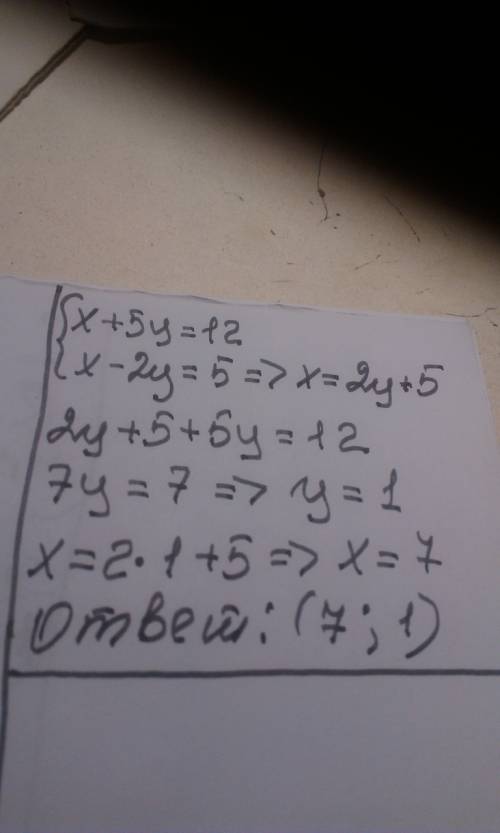 {x+5y=12
{x-2y=5=>x=2y+5
2y+5+5y=12
7y=7=>y=1
x=2·1+5=>x=7
Ответ: (7;1)